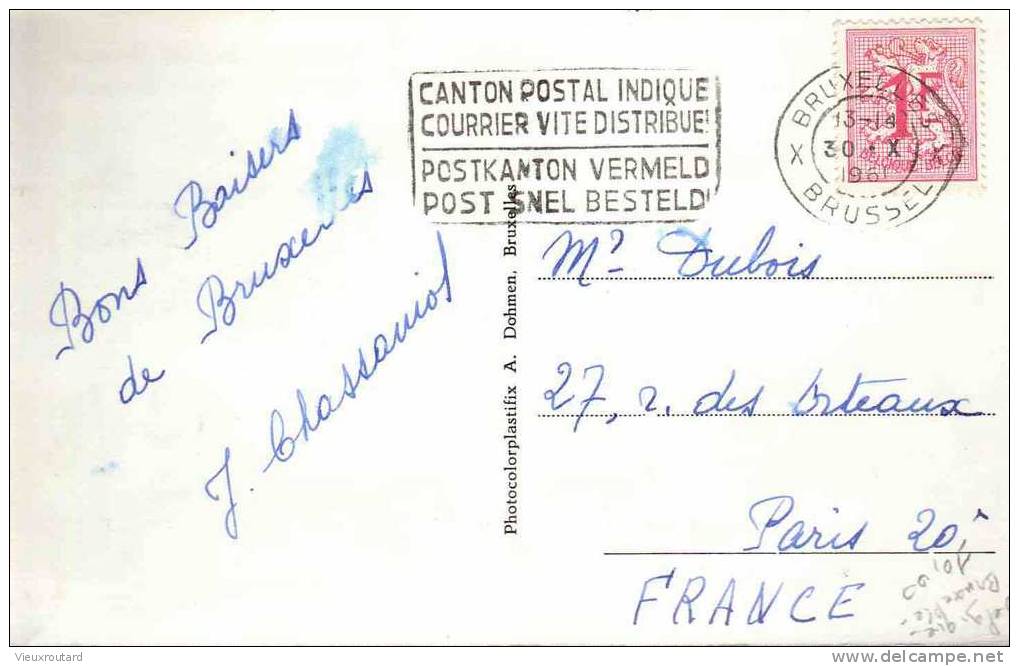 CANTON POSTAL INDIQUE
COURRIER VITE DISTRIBUE!
POSTKANTON VERMELD
POST SNEL BESTELD!
BRUXELLES
13-14
30 · X
1961
X X
BRUSSEL
1F
Bons Baisers
de Bruxelles
J. Chassaniol
Photocolorplastifix A. Dohmen, Bruxelles
Mr Dubois
27, r. des Orteaux
Paris 20
FRANCE
Vieuxroutard
www.delcampe.net